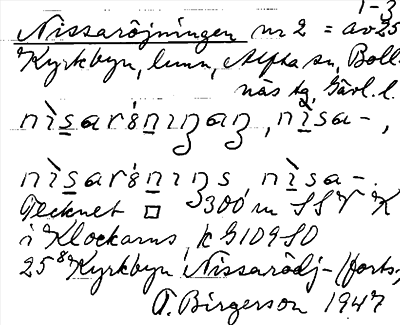 1-3
Nissaröjningen nr 2 = av 25
Kyrkbyn, hmn, Alfta sn, Boll-
näs tg, Gävl. l.
nìsarǿnıŋaŋ, nìsa-,
nìsarǿnıŋs, nìsa-.
Tecknet □ 300 m SSV K
i Klockarns, k G 109 SO
25⁸⁹ Kyrkbyn, Nissarödj- (forts,
T. Birgerson 1947